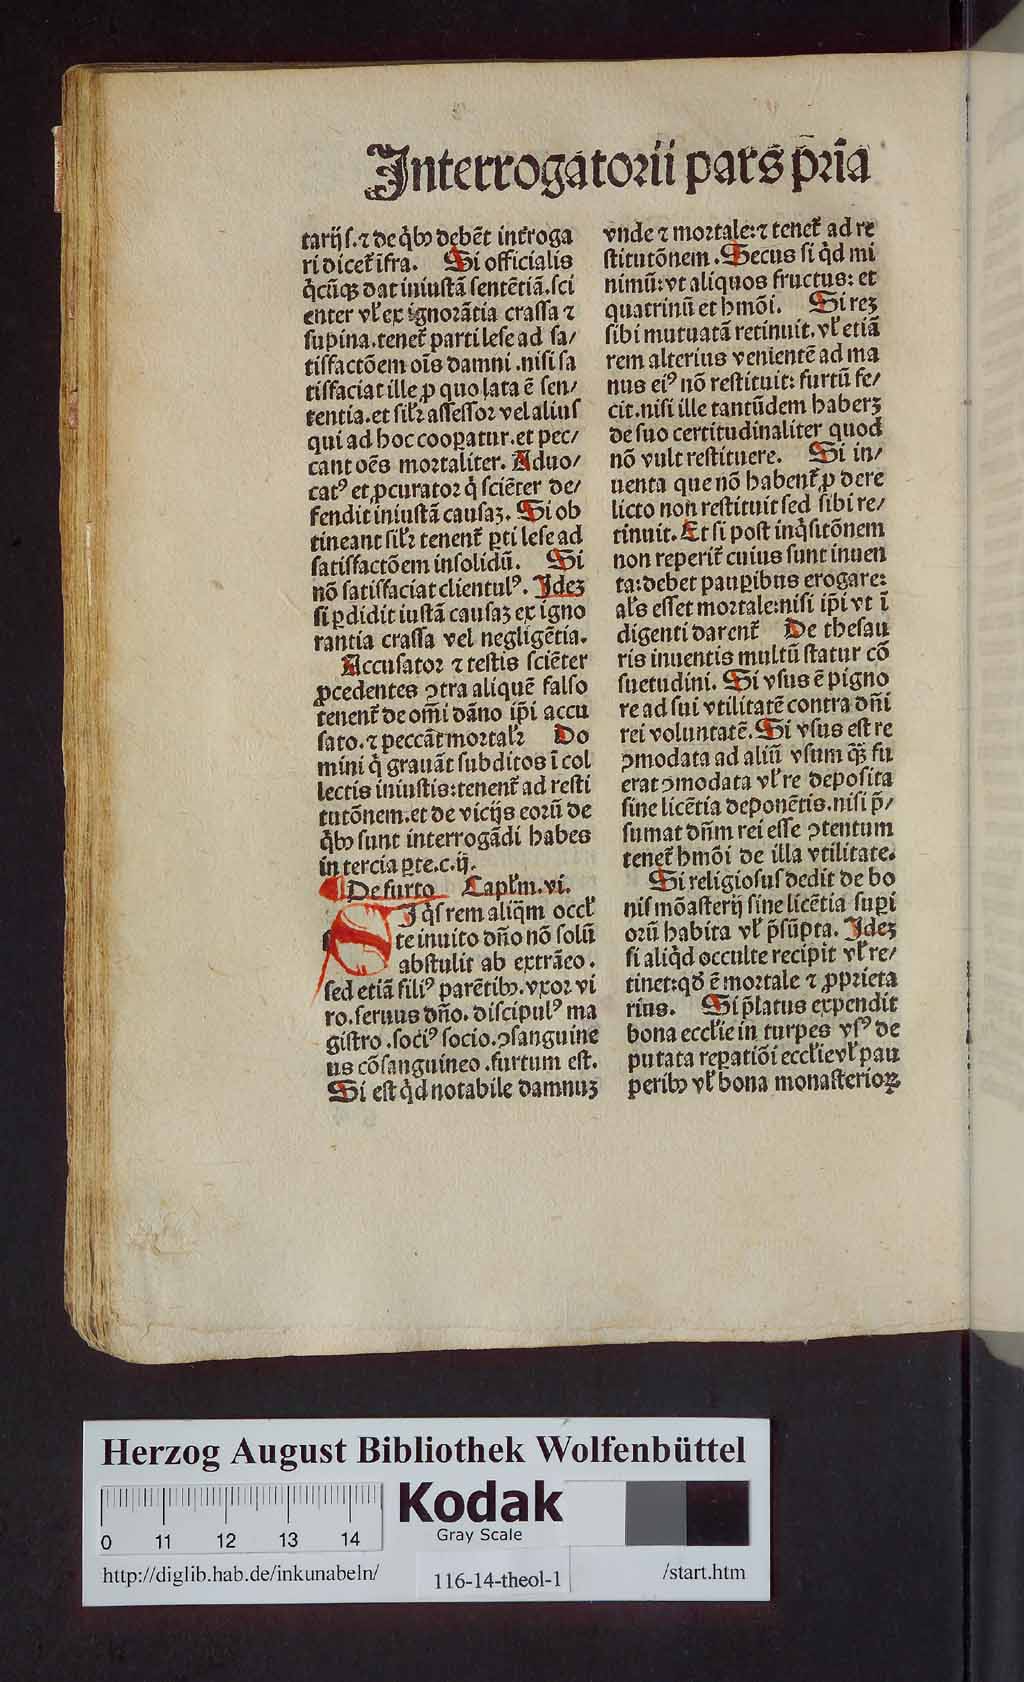 Interrogatorii pars pria̅
tarij ſ. ⁊ de q̇bꝰ debe̅t int̅roga
ri dicet̉ i̅fra. Si officialis
q̇cu̅qꝫ dat iniuſta̅ ſente̅tia̅.ſci
enter vl̉ ex ignora̅tia craſſa ⁊
ſupina.tenet̉ parti leſe ad ſa/
tiſfacto̅em oi̅s damni .niſi ſa
tiſfaciat ille ꝓ quo lata e̅ ſen/
tentia.et ſil̉r aſſeſſor vel aliuſ
qui ad hoc cooꝑatur.et pec/
cant oe̅s mortaliter. Aduo/
catꝰ et ꝓcurator q̇ ſcie̅ter de/
fendit iniuſta̅ cauſaꝫ. Si ob
tineant ſil̉r tenent̉ ꝑti leſe ad
ſatiſfacto̅em inſolidu̅. Si
no̅ ſatiſfaciat clientulꝰ. Jdeꝫ
ſi ꝑdidit iuſta̅ cauſaꝫ ex igno
rantia craſſa vel neglige̅tia.
Accuſator ⁊ teſtis ſcie̅ter
ꝓcedentes ꝯtra alique̅ falſo
tenent̉ de om̅i da̅no ip̅i accu
ſato. ⁊ pecca̅t mortal̉r Do
mini q̇ graua̅t ſubditos i̅ col
lectis iniuſtis:tenent̉ ad reſti
tuto̅nem.et de vicijs eoru̅ de
q̇bꝰ ſunt interroga̅di habes
in tercia ꝑte.c.ij.
¶ De furto Capl̉m.vi.
SJ q̇ſ rem aliq̅m occl̉
te inuito dn̅o no̅ ſolu̅
abſtulit ab extra̅eo .
ſed etia̅ filiꝰ pare̅tibꝰ.vxor vi
ro.ſeruus dn̅o. diſcipulꝰ ma
giſtro .ſociꝰ ſocio.ꝯſanguine
us co̅ſanguineo .furtum eſt.
Si eſt q̇d notabile damnuꝫ
vnde ⁊ mortale:⁊ tenet̉ ad re
ſtituto̅nem .Secus ſi q̇d mi
nimu̅:vt aliquos fructus: et
quatrinu̅ et hmo̅i. Si reꝫ
ſibi mutuata̅ retinuit.vl̉ etia̅
rem alterius veniente̅ ad ma
nus eiꝰ no̅ reſtituit: furtu̅ fe/
cit.niſi ille tantu̅dem haberꝫ
de ſuo certitudinaliter quod
no̅ vult reſtituere. Si in/
uenta que no̅ habent̉ ꝓ dere
licto non reſtituit ſed ſibi re/
tinuit. Et ſi poſt inq̇ſito̅nem
non reperit̉ cuius ſunt inuen
ta:debet pauꝑibus erogare:
al̉s eſſet mortale:niſi ip̅i vt i̅
digenti darent̉ De theſau
ris inuentis multu̅ ſtatur co̅
ſuetudini. Si vſus e̅ pigno
re ad ſui vtilitate̅ contra dn̅i
rei voluntate̅. Si vſus eſt re
ꝯmodata ad aliu̅ vſum q̅ꝫ fu
erat ꝯmodata vl̉ re depoſita
ſine lice̅tia depone̅tis.niſi p̅/
ſumat dn̅m rei eſſe ꝯtentum
tenet̉ hmo̅i de illa vtilitate.
Si religioſuſ dedit de bo
nis mo̅aſterij ſine lice̅tia ſuꝑi
oru̅ habita vl̉ p̅ſu̅pta. Jdeꝫ
ſi aliq̇d occulte recipit vl̉ re/
tinet:qd̉ e̅ mortale ⁊ ꝓprieta
rius. Si p̅latus expendit
bona eccl̉ie in turpes vſꝰ de
putata reꝑatio̅i eccl̉ie vl̉ pau
peribꝰ vl̉ bona monaſterioꝝ
Herzog August Bibliothek Wolfenbüttel
Kodak
Gray Scale
0 11 12 13 14
http://diglib.hab.de/inkunabeln/ 116-14-theol-1 /start.htm